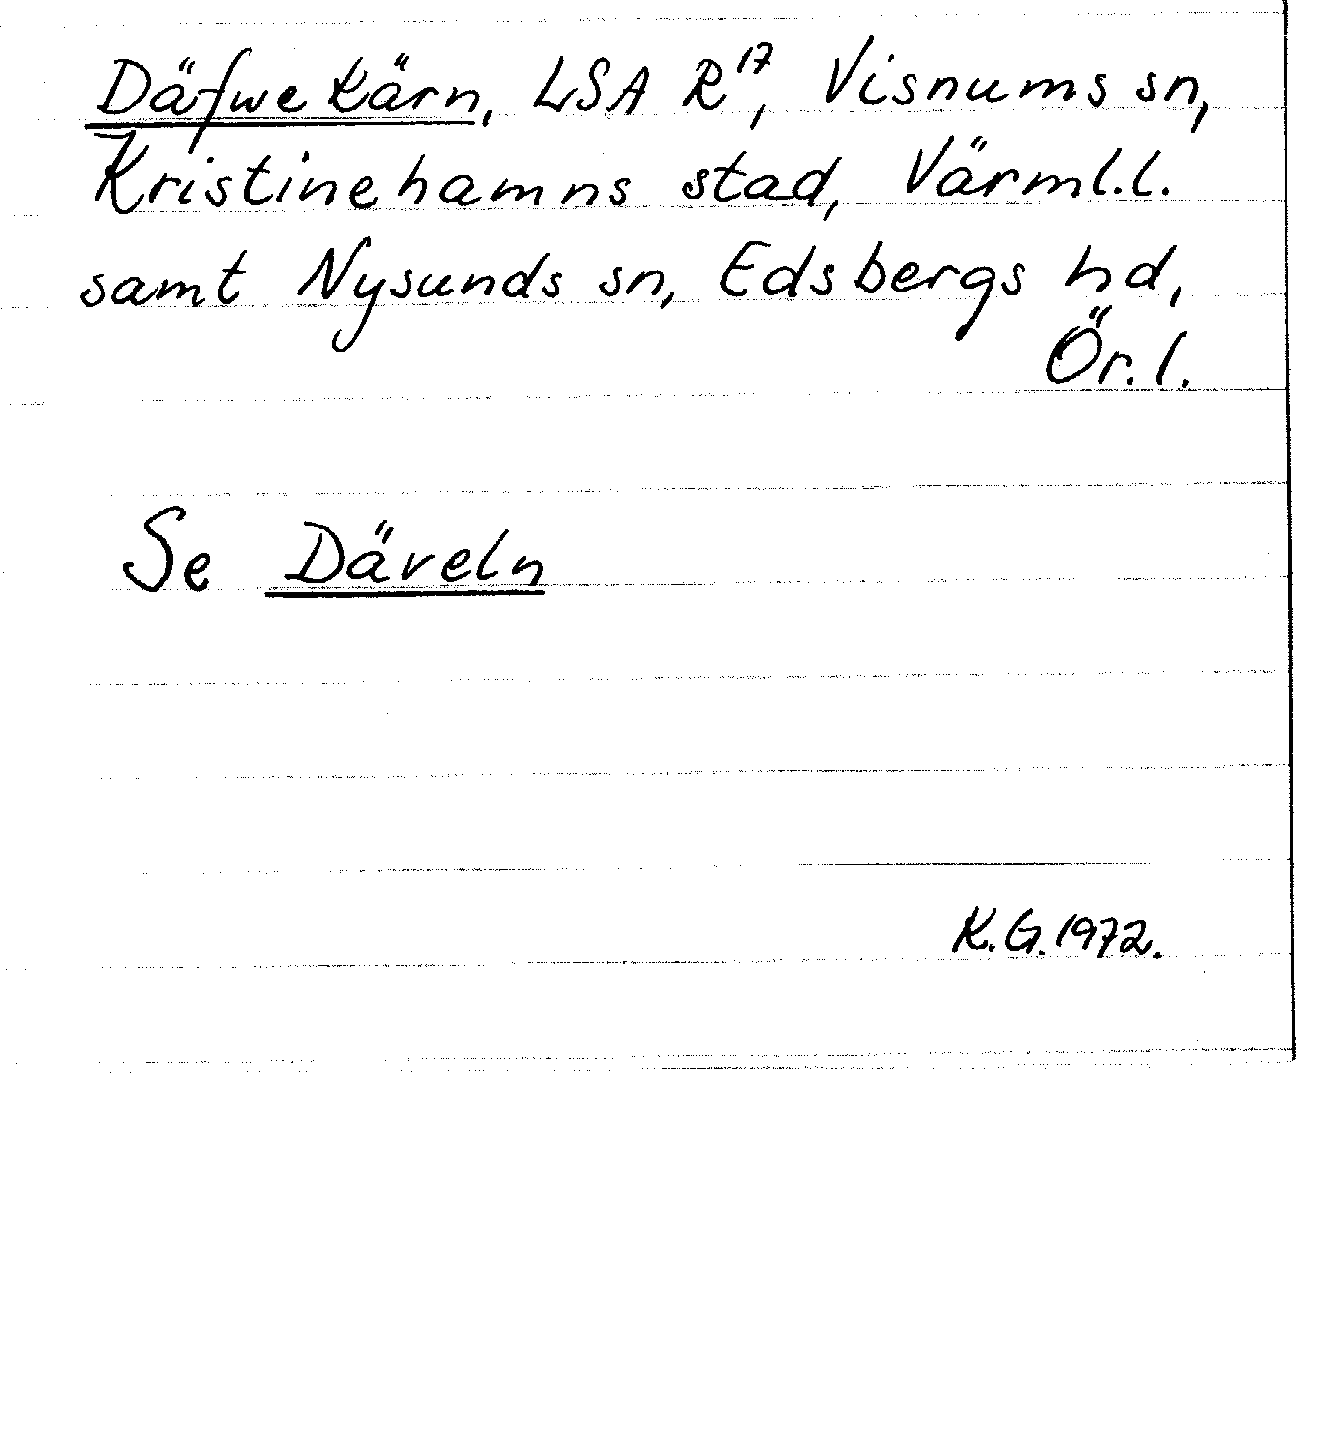 Däfwe kärn, LSA R¹⁷, Visnums sn,
Kristinehamns stad, Värml.l.
samt Nysunds sn, Edsbergs hd,
Ör.l.
Se Däveln
K.G.1972.